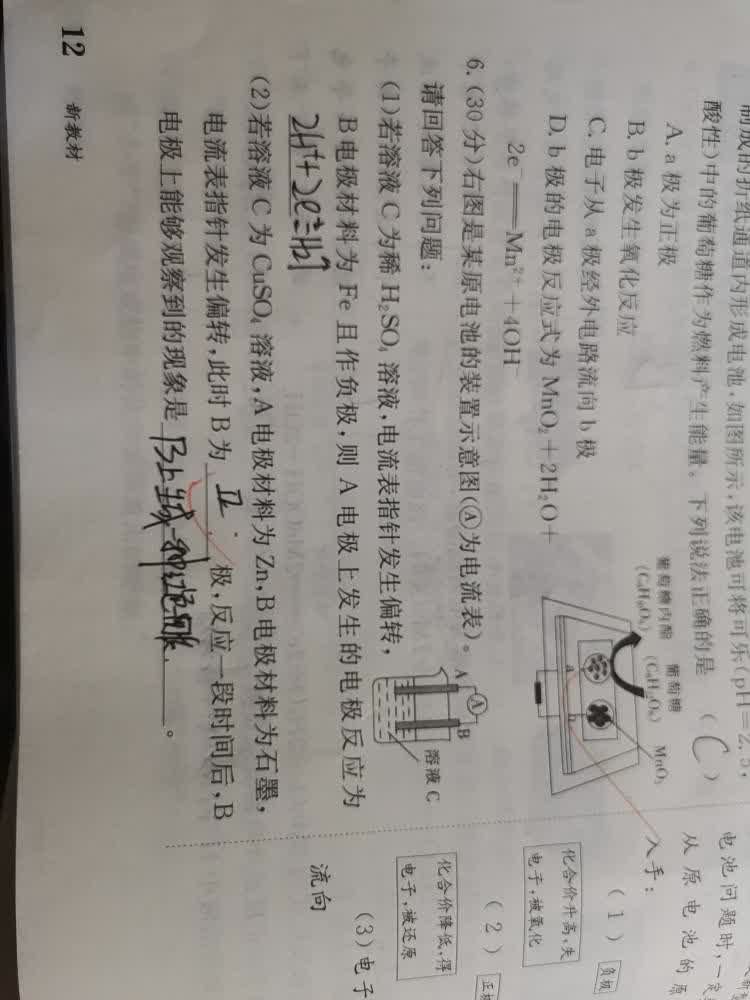 制成的折纸通道内形成电池,如图所示,该电池可将可乐(pH=2.5,
酸性)中的葡萄糖作为燃料产生能量。下列说法正确的是
( C )
A. a 极为正极
B. b 极发生氧化反应
C. 电子从 a 极经外电路流向 b 极
D. b 极的电极反应式为 MnO₂+2H₂O+
2e⁻══Mn²⁺+4OH⁻
葡萄糖内酯 葡萄糖
(C₆H₁₀O₆) (C₆H₁₂O₆) MnO₂
a
b
6. (30 分)右图是某原电池的装置示意图(Ⓐ为电流表)。
请回答下列问题:
(1)若溶液 C 为稀 H₂SO₄ 溶液,电流表指针发生偏转,
B 电极材料为 Fe 且作负极,则 A 电极上发生的电极反应为
2H⁺+2e⁻=H₂↑
A Ⓐ B
溶液 C
(2)若溶液 C 为 CuSO₄ 溶液,A 电极材料为 Zn,B 电极材料为石墨,
电流表指针发生偏转,此时 B 为 正 极,反应一段时间后,B
电极上能够观察到的现象是 B上生成 。
12 新教材
电池问题时,一定
从原电池的原
入手:
(1) 负极
化合价升高,失
电子,被氧化
(2) 正极
化合价降低,得
电子,被还原
(3)电子
流向